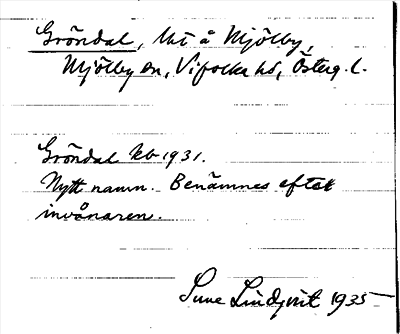 Gröndal, lht å Mjölby,
Mjölby sn, Vifolka hd, Österg. l.
Gröndal kb 1931.
Nytt namn. Benämnes efter
invånaren.
Sune Lindqvist 1935